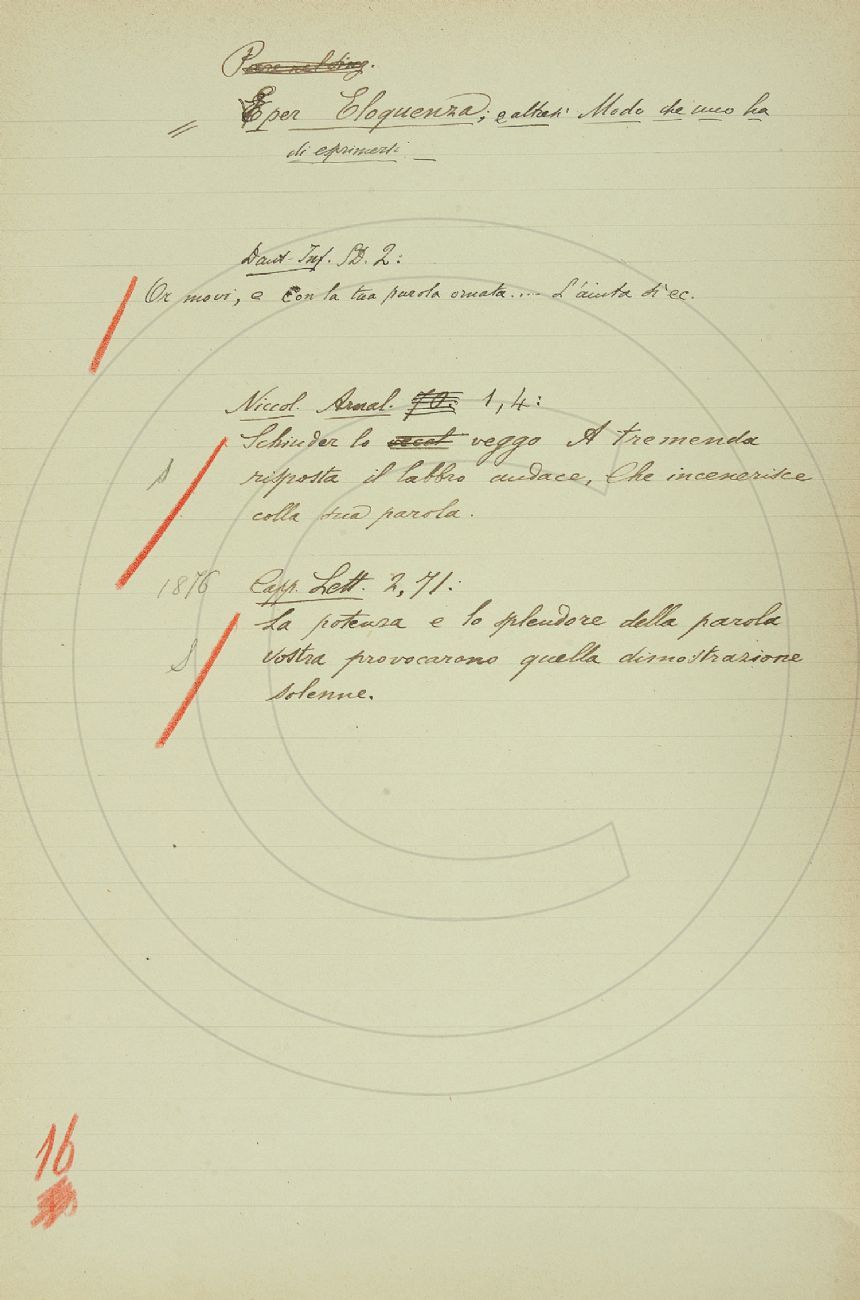 E per Eloquenza; e altresì Modo che uno ha
di esprimersi. —
Dant. Inf. 2:
Or movi, e con la tua parola ornata.... L'aiuta sì ec.
Niccol. Arnal. 1, 4:
Schiuder lo veggo A tremenda
risposta il labbro audace, Che incenerisce
colla sua parola.
S
1876 Capp. Lett. 2, 71:
La potenza e lo splendore della parola
vostra provocarono quella dimostrazione
solenne.
S
16